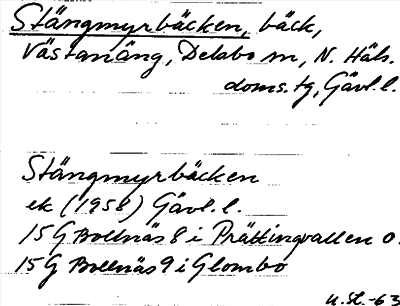 Stängmyrbäcken, bäck,
Västanäng, Delsbo sn, N. Häls.
doms. tg, Gävl. l.
Stängmyrbäcken
ek (1958) Gävl. l.
15G Bollnäs 8 i Prästingvallen o.
15G Bollnäs 9 i Glombo
U.H.-63